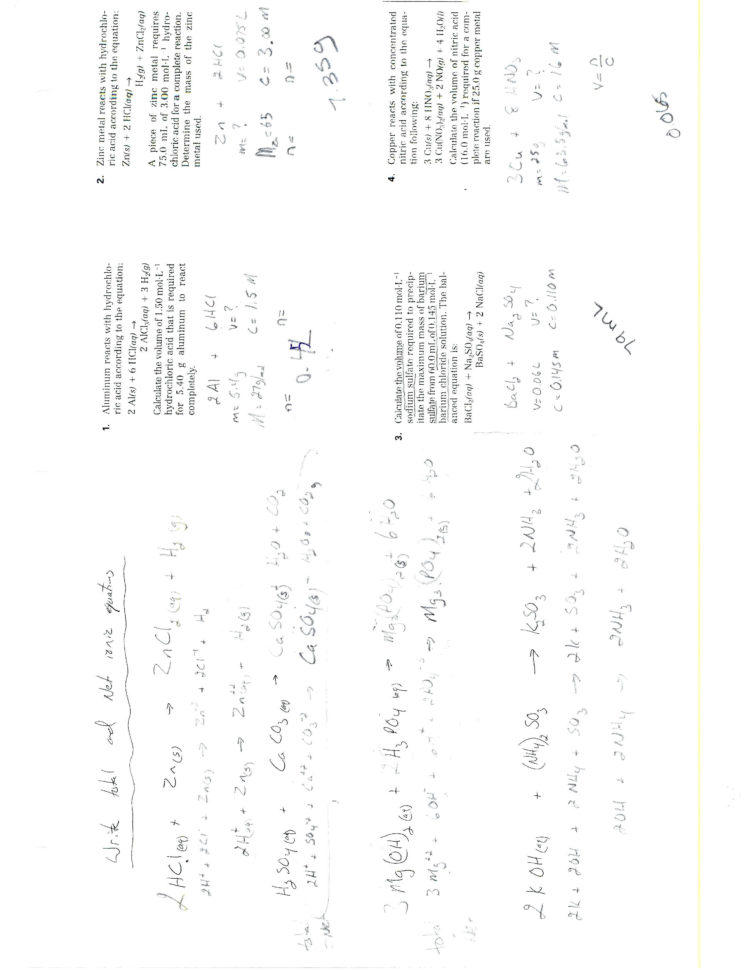 Write total and Net ionic equations
2 HCl(aq) + Zn(s) → ZnCl2(aq) + H2(g)
2H+ + 2Cl- + Zn(s) → Zn+2 + 2Cl-1 + H2
2H+(aq) + Zn(s) → Zn+2(aq) + H2(g)
H2SO4(aq) + CaCO3(aq) → CaSO4(s) + H2O + CO2
total 2H+ + SO4-2 + Ca+2 + CO3-2 → CaSO4(s) + H2O + CO2 g
Net
3 Mg(OH)2(aq) + 2H3PO4(aq) → Mg3(PO4)2(s) + 6H2O
total 3Mg+2 + 6OH-
→ Mg3(PO4)2(s) +
2KOH(aq) + (NH4)2SO3 → K2SO3 + 2NH3 + 2H2O
2K + 2OH + 2NH4 + SO3 → 2K + SO3 + 2NH3 + 2H2O
2OH + 2NH4 → 2NH3 + 2H2O
1. Aluminum reacts with hydrochlo-
ric acid according to the equation:
2 Al(s) + 6 HCl(aq) →
2 AlCl3(aq) + 3 H2(g)
Calculate the volume of 1.50 mol·L-1
hydrochloric acid that is required
for 5.40 g aluminum to react
completely.
2Al + 6HCl
m= 5.4g V= ?
M= 27g/mol C= 1.5 M
n= n=
0.4L
2. Zinc metal reacts with hydrochlo-
ric acid according to the equation:
Zn(s) + 2 HCl(aq) →
H2(g) + ZnCl2(aq)
A piece of zinc metal requires
75.0 mL of 3.00 mol·L-1 hydro-
chloric acid for a complete reaction.
Determine the mass of the zinc
metal used.
Zn + 2HCl
m= ? V= 0.075L
M=65 C= 3.00 M
n= n=
7.35g
3. Calculate the volume of 0.110 mol·L-1
sodium sulfate required to precip-
itate the maximum mass of barium
sulfate from 60.0 mL of 0.145 mol·L-1
barium chloride solution. The bal-
anced equation is:
BaCl2(aq) + Na2SO4(aq) →
BaSO4(s) + 2 NaCl(aq)
BaCl2 + Na2SO4
V=0.06L V= ?
C=0.145m C=0.110m
79mL
4. Copper reacts with concentrated
nitric acid according to the equa-
tion following:
3 Cu(s) + 8 HNO3(aq) →
3 Cu(NO3)2(aq) + 2 NO(g) + 4 H2O(l)
Calculate the volume of nitric acid
(16.0 mol·L-1) required for a com-
plete reaction if 25.0 g copper metal
are used.
3Cu + 8 HNO3
m= 25g V= ?
M=63.5g/mol C= 16 M
V= n/C
0.065